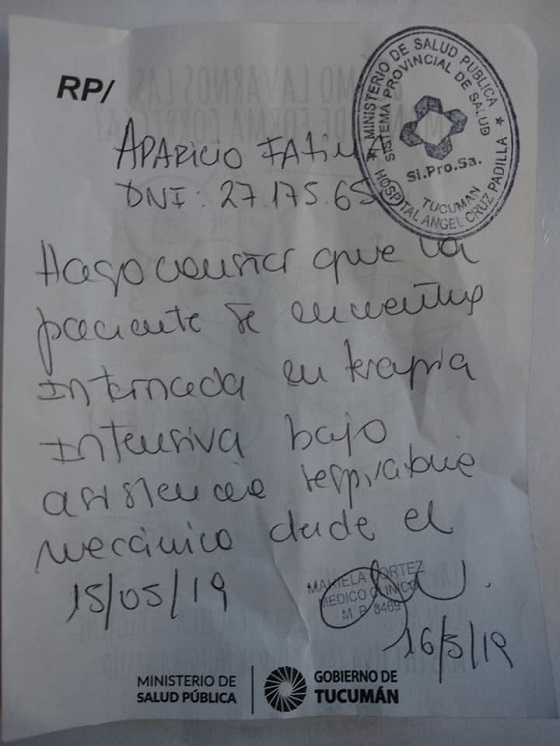 RP/
MINISTERIO DE SALUD PÚBLICA
SISTEMA PROVINCIAL DE SALUD
Si.Pro.Sa.
TUCUMAN
HOSPITAL ANGEL CRUZ PADILLA
APARICIO FATIMA
DNI: 27.175.65
Hago constar que la
paciente se encuentra
Internada en terapia
Intensiva bajo
asistencia respiratoria
mecánica desde el
15/05/19
MARIELA CORTEZ
MEDICO CLINICO
M.P. 8469
16/5/19
MINISTERIO DE
SALUD PÚBLICA
GOBIERNO DE
TUCUMÁN